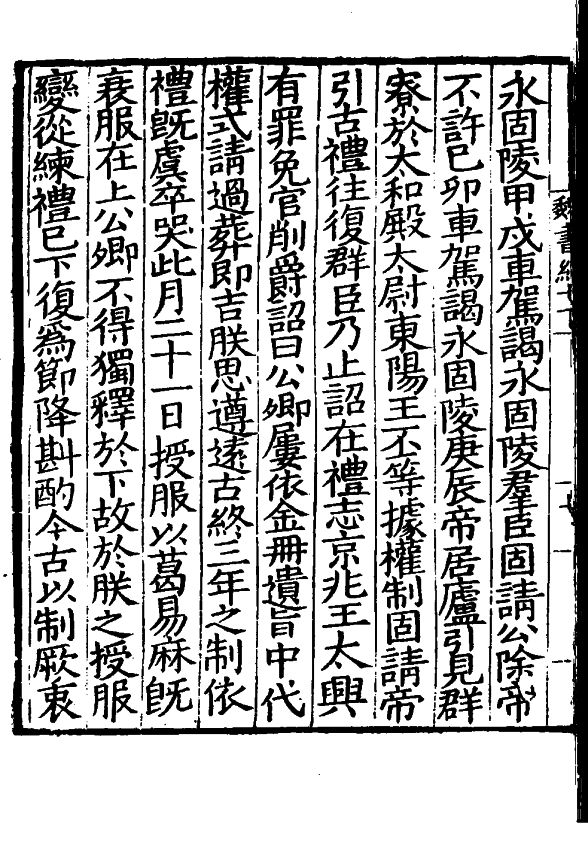 永固陵甲戌車駕謁永固陵羣臣固請公除帝
不許己卯車駕謁永固陵庚辰帝居廬引見群
寮於太和殿太尉東陽王丕等據權制固請帝
引古禮往復群臣乃止詔在禮志京兆王太興
有罪免官削爵詔曰公卿屢依金冊遺旨中代
權式請過葬即吉朕思遵遠古終三年之制依
禮旣虞卒哭此月二十一日授服以葛易麻旣
衰服在上公卿不得獨釋於下故於朕之授服
變從練禮已下復爲節降斟酌今古以制厥衷
魏書紀七下